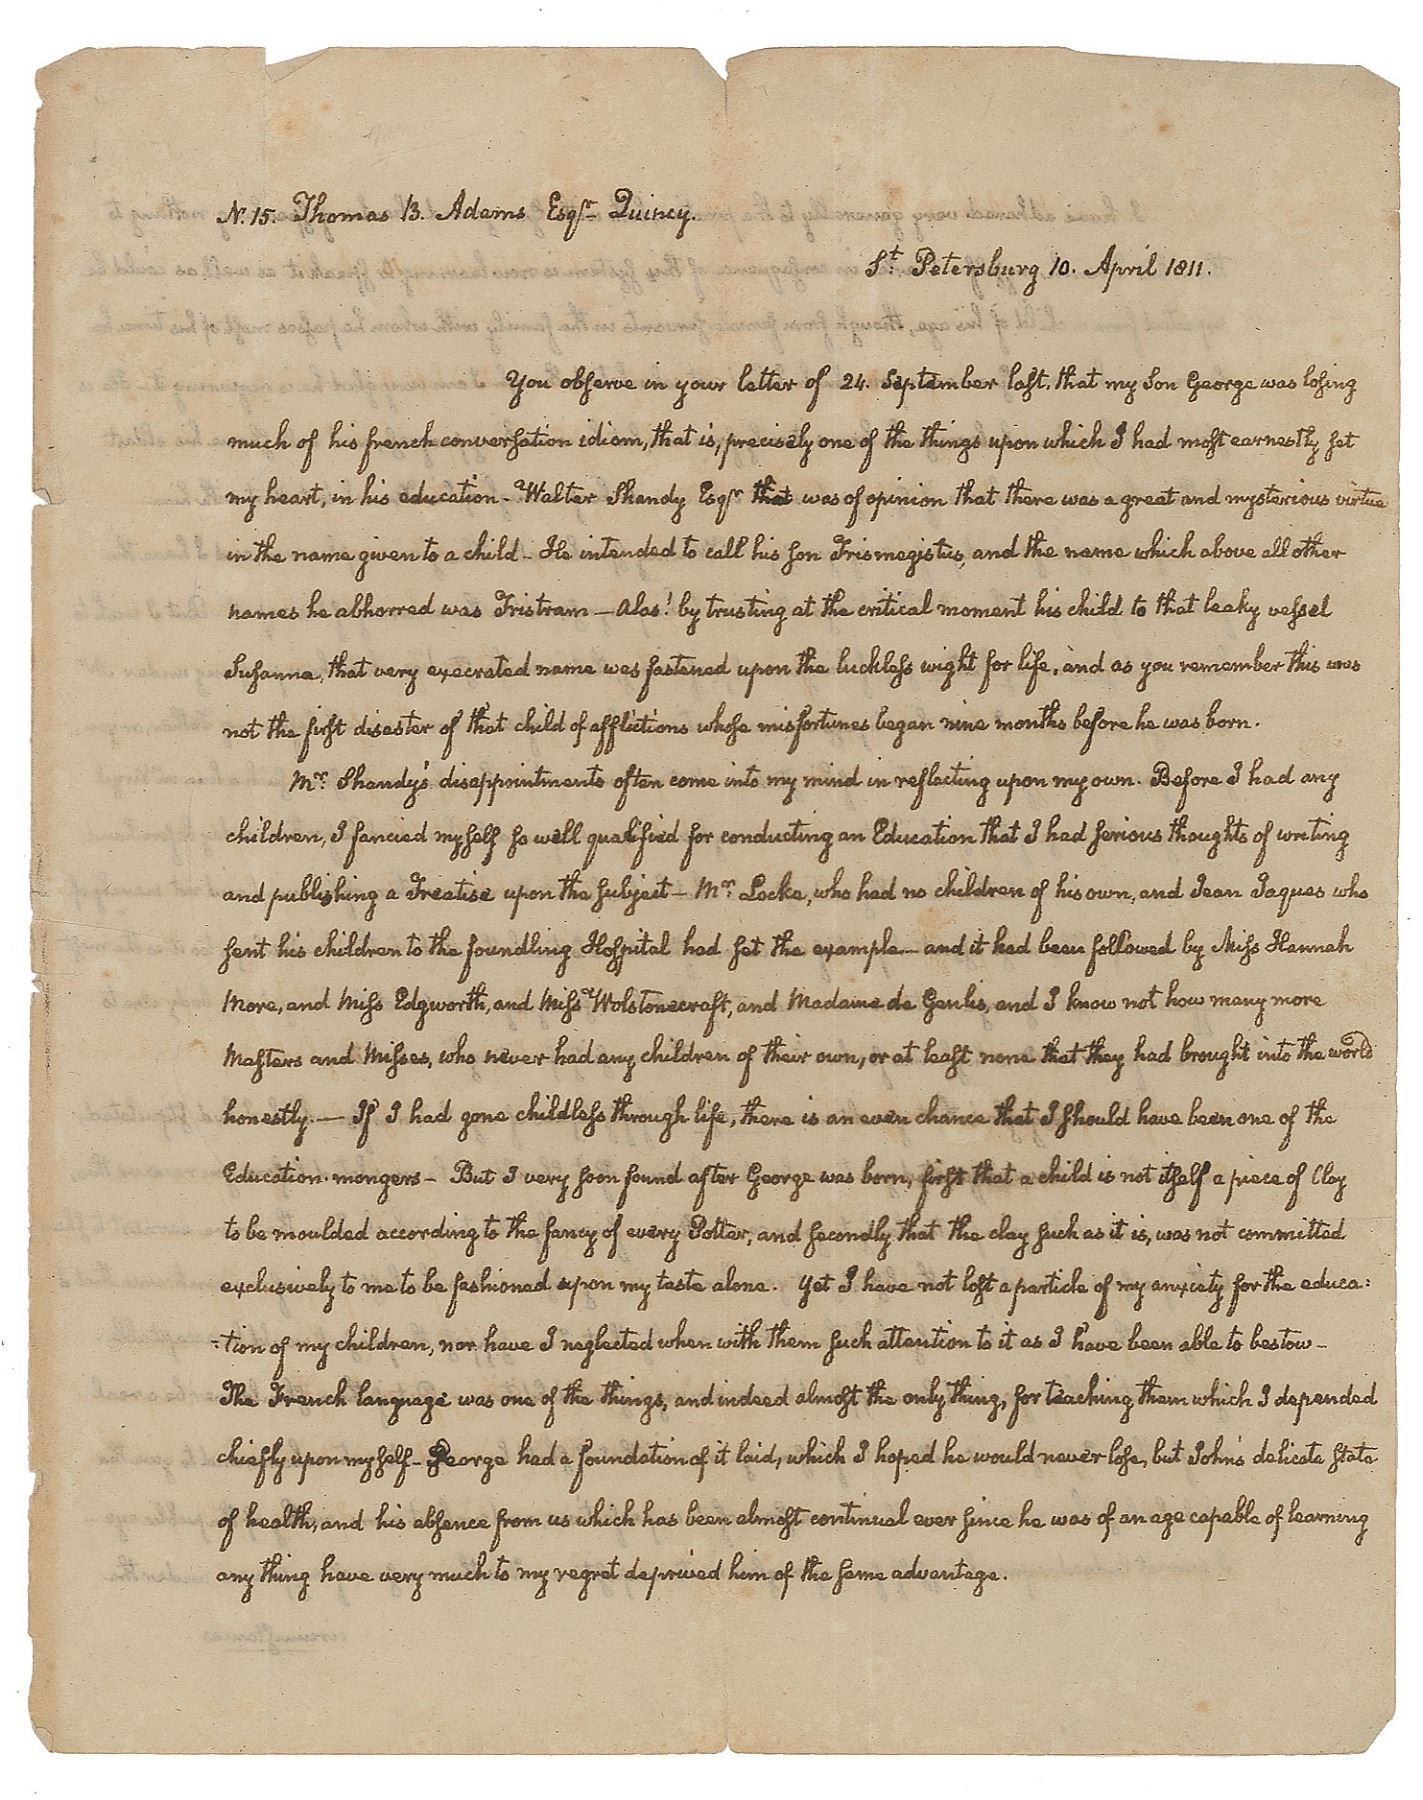 N. 15. Thomas B. Adams Esqr. Quincy.
St. Petersburg 10. April 1811.
You observe in your letter of 24. September last, that my Son George was losing
much of his french conversation idiom, that is, precisely one of the things upon which I had most earnestly set
my heart, in his education - Walter Shandy Esqr. that was of opinion that there was a great and mysterious virtue
in the name given to a child - He intended to call his son Trismegistus, and the name which above all other
names he abhorred was Tristram — alas! by trusting at the critical moment his child to that leaky vessel
Susanna, that very execrated name was fastened upon the luckless wight for life, and as you remember this was
not the first disaster of that child of afflictions whose misfortunes began nine months before he was born.
Mr. Shandy's disappointments often come into my mind in reflecting upon my own. Before I had any
children, I fancied myself so well qualified for conducting an Education that I had serious thoughts of writing
and publishing a Treatise upon the subject — Mr. Locke, who had no children of his own, and Jean Jaques who
sent his children to the foundling Hospital had set the example — and it had been followed by Miss Hannah
More, and Miss Edgworth, and Miss Wolstonecraft, and Madame de Genlis, and I know not how many more
Masters and Misses, who never had any children of their own, or at least none that they had brought into the world
honestly. — If I had gone childless through life, there is an even chance that I should have been one of the
Education-mongers - But I very soon found after George was born, first that a child is not itself a piece of Clay
to be moulded according to the fancy of every Potter, and secondly that the clay such as it is, was not committed
exclusively to me to be fashioned upon my taste alone. Yet I have not lost a particle of my anxiety for the educa:
:tion of my children, nor have I neglected when with them such attention to it as I have been able to bestow -
The French language was one of the things, and indeed almost the only thing, for teaching them which I depended
chiefly upon myself - George had a foundation of it laid, which I hoped he would never lose, but John's delicate state
of health, and his absence from us which has been almost continual ever since he was of an age capable of learning
any thing have very much to my regret deprived him of the same advantage.